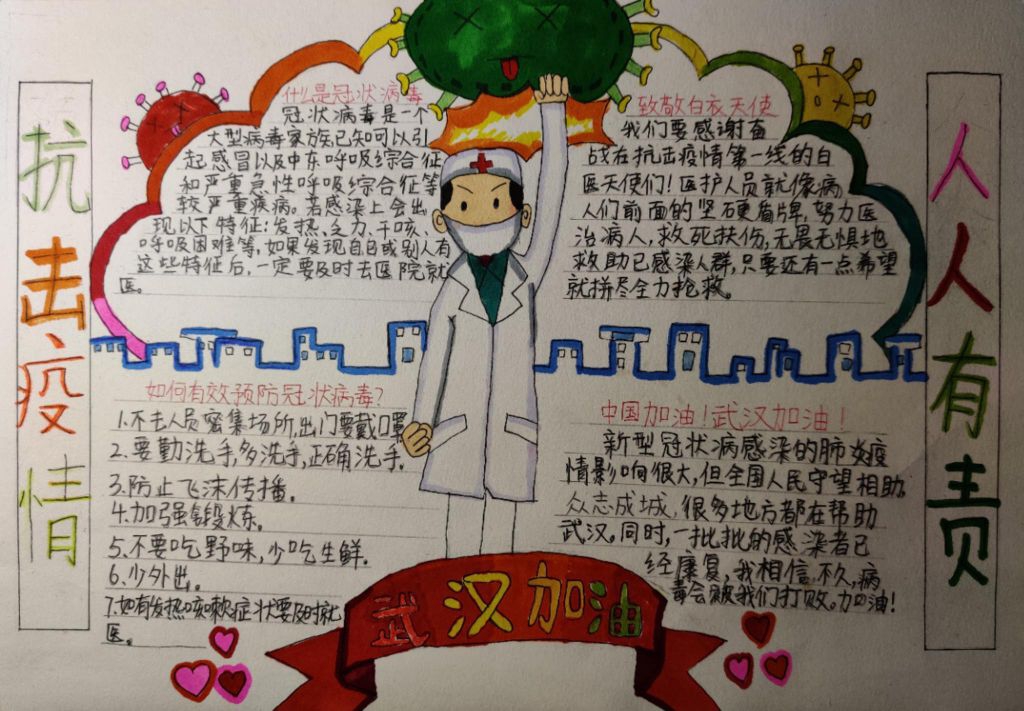 抗击疫情
什么是冠状病毒
冠状病毒是一个
大型病毒家族,已知可以引
起感冒以及中东呼吸综合征
和严重急性呼吸综合征等
较严重疾病。若感染上会出
现以下特征:发热、乏力、干咳、
呼吸困难等,如果发现自己或别人有
这些特征后,一定要及时去医院就
医。
致敬白衣天使
我们要感谢奋
战在抗击疫情第一线的白
医天使们!医护人员就像病
人们前面的坚硬盾牌,努力医
治病人,救死扶伤,无畏无惧地
救助已感染人群,只要还有一点希望
就拼尽全力抢救。
人人有责
如何有效预防冠状病毒?
1.不去人员密集场所,出门要戴口罩
2.要勤洗手,多洗手,正确洗手。
3.防止飞沫传播。
4.加强锻炼。
5.不要吃野味,少吃生鲜。
6.少外出。
7.如有发热咳嗽症状要及时就
医。
中国加油!武汉加油!
新型冠状病感染的肺炎疫
情影响很大,但全国人民守望相助,
众志成城,很多地方都在帮助
武汉。同时,一批批的感染者已
经康复,我相信,不久,病
毒会被我们打败。加油!
武汉加油